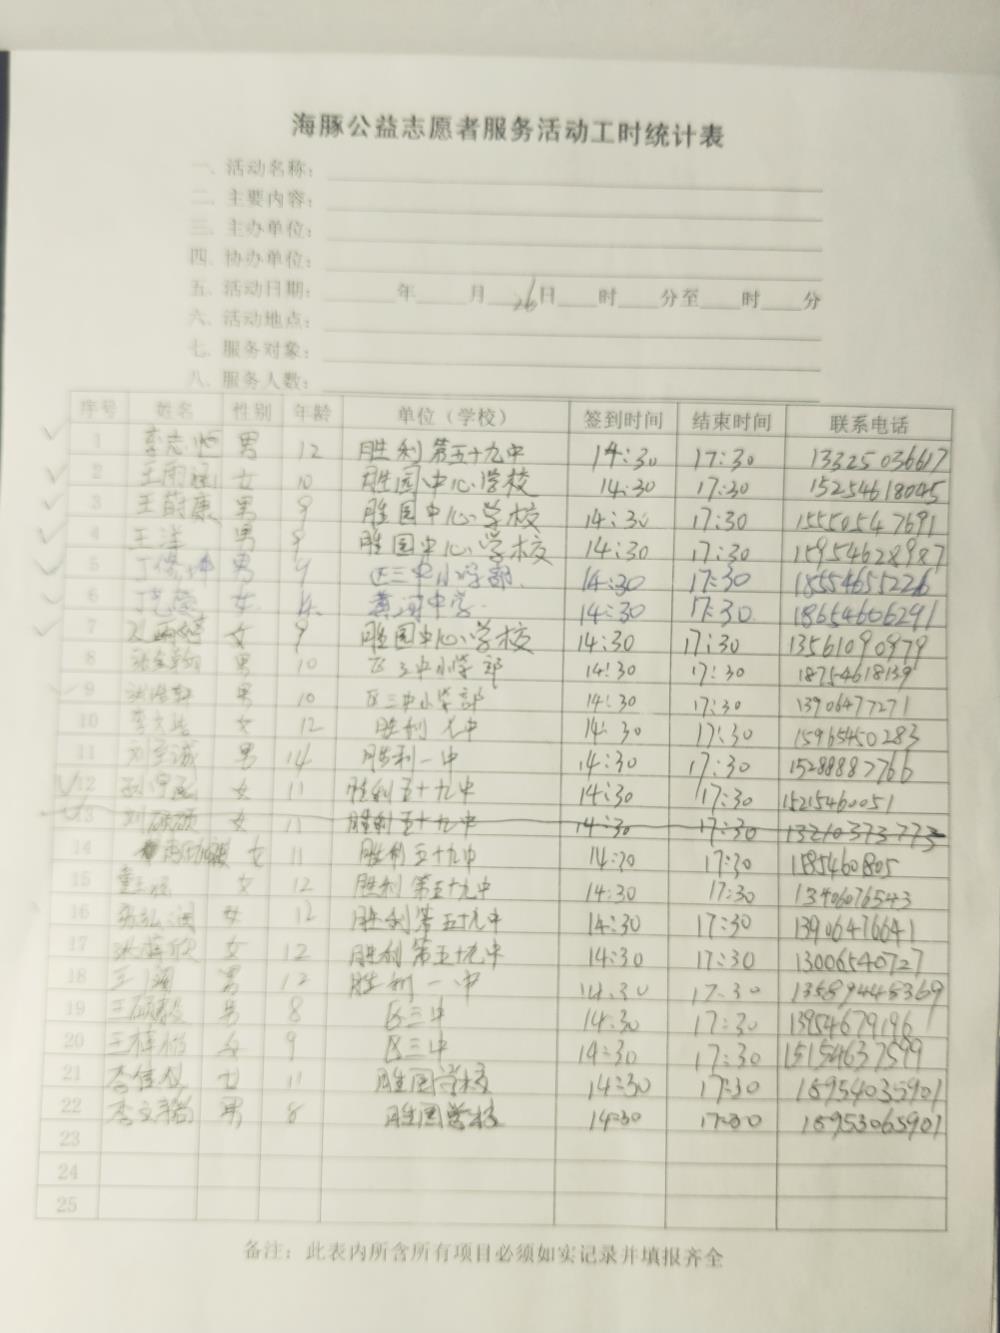 海豚公益志愿者服务活动工时统计表
一、活动名称：
二、主要内容：
三、主办单位：
四、协办单位：
五、活动日期： 年 月 26日 时 分至 时 分
六、活动地点：
七、服务对象：
八、服务人数：
序号 姓名 性别 年龄 单位（学校） 签到时间 结束时间 联系电话
1 李志恒 男 12 胜利第五十九中 14:30 17:30 13325036617
2 王雨涵 女 10 胜园中心学校 14:30 17:30 15254618045
3 王蔚康 男 9 胜园中心学校 14:30 17:30 15550547691
4 王洋 男 9 胜园中心学校 14:30 17:30 15954628987
5 男 9 区三中小学部 14:30 17:30 18554651226
6 女 14 黄河中学 14:30 17:30 18654606291
7 女 9 胜园中心学校 14:30 17:30 13561090979
8 男 10 区三中小学部 14:30 17:30 18754618139
9 男 10 区三中小学部 14:30 17:30 13906477271
10 李文 女 12 胜利 中 14:30 17:30 15965450283
11 刘宇诚 男 14 胜利一中 14:30 17:30 15288887766
12 女 11 胜利五十九中 14:30 17:30 15215460051
13 刘硕硕 女 11 胜利五十九中 14:30 17:30 13210373773
14 女 11 胜利五十九中 14:30 17:30 1585460805
15 女 12 胜利第五十九中 14:30 17:30 13406076543
16 张弘润 女 12 胜利第五十九中 14:30 17:30 13906476641
17 女 12 胜利第五十九中 14:30 17:30 13006540727
18 王 男 12 胜利一中 14:30 17:30 13589445369
19 王硕 男 8 区三中 14:30 17:30 13954679196
20 王梓怡 女 9 区三中 14:30 17:30 15154637599
21 李佳 女 11 胜园学校 14:30 17:30 18954035901
22 李文 男 8 胜园学校 14:30 17:30 18953065901
23
24
25
备注：此表内所含所有项目必须如实记录并填报齐全